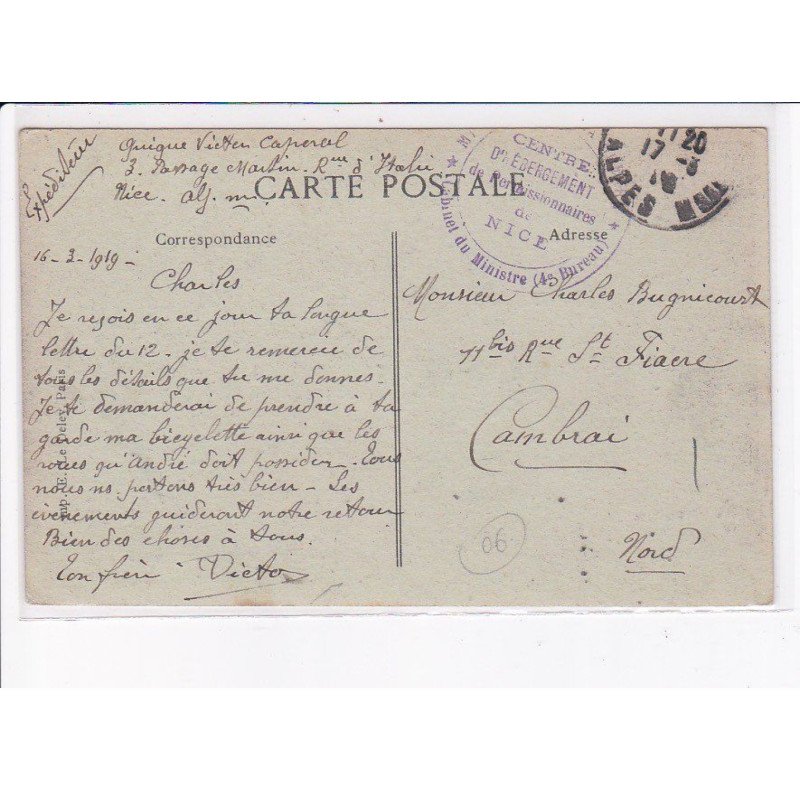 Expéditeur
Victor Caporal
3. Passage Martin. Rue d'Italie
Nice. Alp. m.
CARTE POSTALE
CENTRE
D'HÉBERGEMENT
de Permissionnaires
de
NICE
Cabinet du Ministre (4e Bureau)
17 - 3
ALPES MMES
Correspondance
Adresse
16-3-1919-
Charles
Je reçois en ce jour ta longue
lettre du 12. je te remercie de
tous les détails que tu me donnes.
Je te demanderai de prendre à ta
garde ma bicyclette ainsi que les
roues qu'André doit posséder. Tous
nous ns portons très bien - Les
évènements guideront notre retour
Bien des choses à tous.
Ton frère Victor
Imp. E. Le Deley, Paris
Monsieur Charles Bugnicourt
11bis Rue St Fiacre
Cambrai
Nord
06.